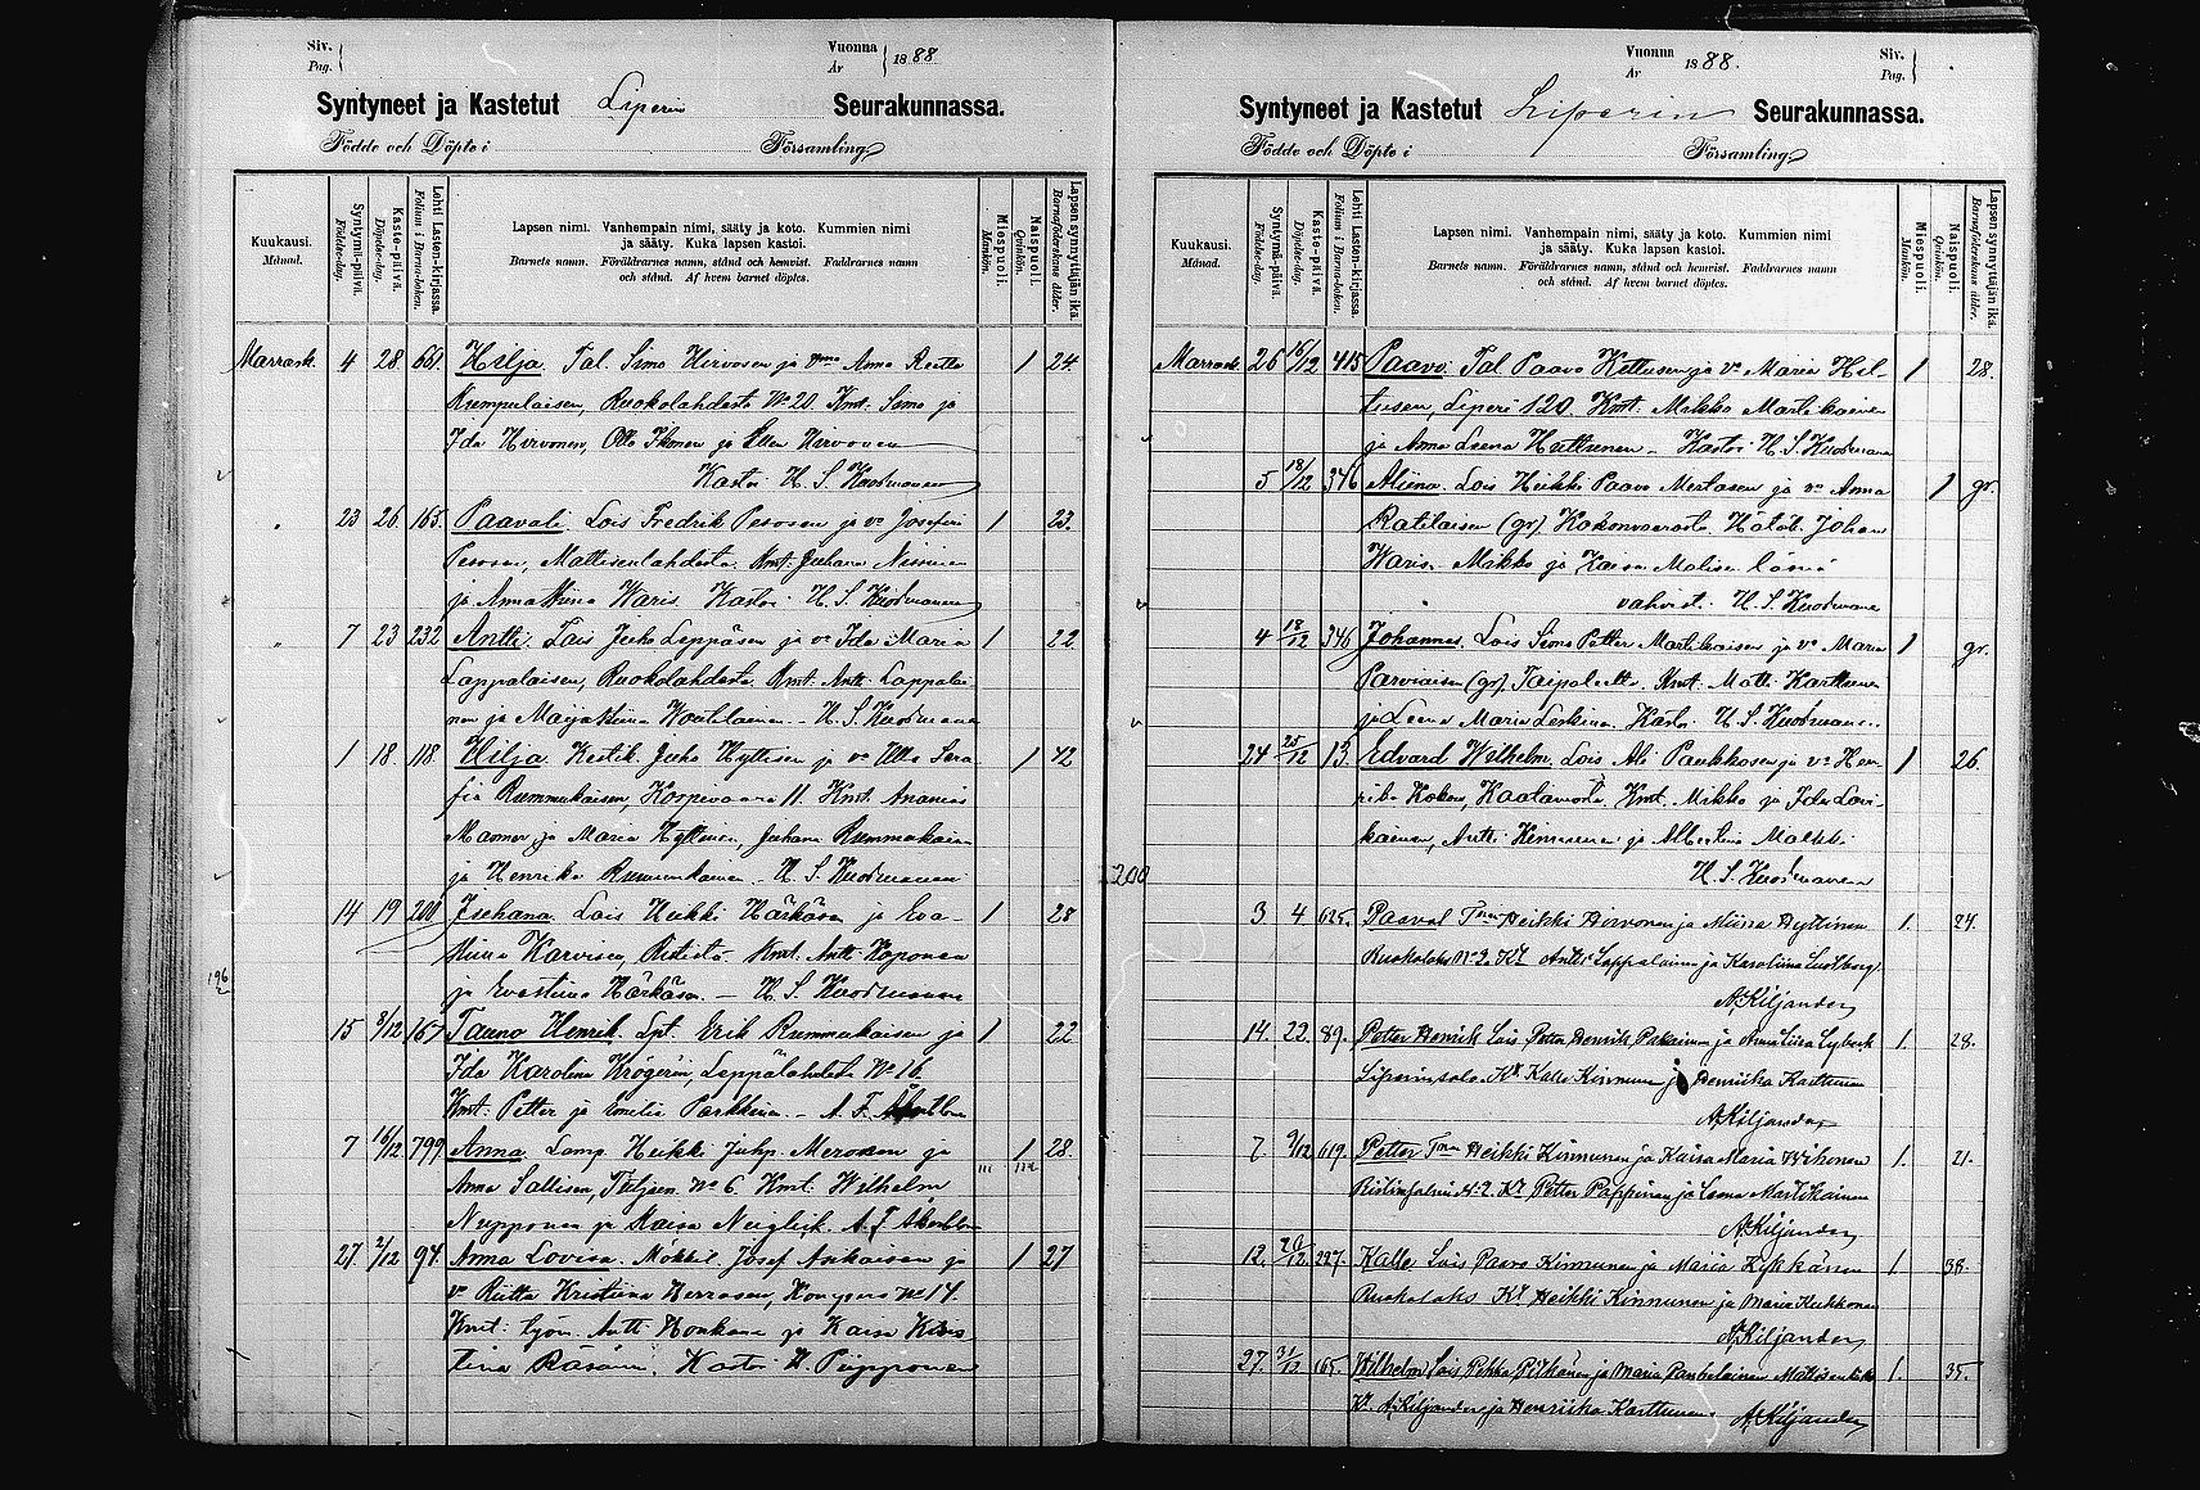 Siv.
Pag.
Vuonna
År
1888
Syntyneet ja Kastetut Liperin Seurakunnassa.
Födde och Döpte i Församling
Kuukausi.
Månad.
Syntymä-päivä.
Födelse-dag.
Kaste-päivä.
Döpelse-dag.
Lehti Lasten-kirjassa.
Folium i Barna-boken.
Lapsen nimi. Vanhempain nimi, sääty ja koto. Kummien nimi
ja sääty. Kuka lapsen kastoi.
Barnets namn. Föräldrarnes namn, stånd och hemvist. Faddrarnes namn
och stånd. Af hvem barnet döptes.
Miespuoli.
Mankön.
Naispuoli.
Qvinkön.
Lapsen synnyttäjän ikä.
Barnaföderskans ålder.
Marrask. 4 28. 661. Hilja. Tal. Simo Hirvosen ja Anna Reetta 1 24.
Kumpulaisen, Ruokolahdesta No 20. Kmt: Simo ja
Ida Hirvonen, Olli Ikonen ja Ellen Hirvonen
Kastoi H. S. Kuosmanen
23 26. 165. Paavali. Lois Fredrik Pesosen ja vo Josefiin 1 23.
Pesosen, Mattisenlahdesta. Kmt: Juhana Nissinen
ja Anna Stiina Waris. Kastoi H. S. Kuosmanen
" 7 23 232 Antti. Lois Juho Leppäsen ja vo Ida Maria 1 22
Lappalaisen, Ruokolahdesta. Kmt: Antti Lappalai-
nen ja Maija Stiina Woutilainen. - H. S. Kuosmanen
1 18. 118. Hilja. Kestik. Juho Hyttisen ja vo Ulla Sera 1 42
fia Rummukaisen, Korpivaara 11. Kmt. Ananias
Maomen ja Maria Hyttinen, Juhana Rummukainen
ja Henrika Rummukainen. - H. S. Kuosmanen
14 19 200 Juhana. Lois Heikki Härkösen ja Eva- 1 28
stiina Karvisen, Rististä. Kmt. Antti Koponen
196
ja Evastiina Härkösen. - H. S. Kuosmanen
15 8/12 167 Tauno Henrik. Lpt. Erik Rummukaisen ja 1 22
Ida Karolina Krögerin, Leppälahdesta No 16.
Kmt: Petter ja Emelie Parkkinen. - A. F. Åkerblom
7 16/12 799 Anna. Lamp. Heikki Juhp. Merosen ja 1 28.
Anna Sallisen, No 6. Kmt: Wilhelm
Nupponen ja Kaisa Neiglick. A. F. Åkerblom
27. 2/12 94. Anna Lovisa. Mökkil. Josef Asikaisen ja 1 27
vo Riitta Kristiina Herrasen, No 14.
Kmt: työm. Antti Honkanen ja Kaisa Kris
tiina Räsänen. Kastoi H. Piipponen
Vuonna
År
1888.
Siv.
Pag.
Syntyneet ja Kastetut Liperin Seurakunnassa.
Födde och Döpte i Församling
Kuukausi.
Månad.
Syntymä-päivä.
Födelse-dag.
Kaste-päivä.
Döpelse-dag.
Lehti Lasten-kirjassa.
Folium i Barna-boken.
Lapsen nimi. Vanhempain nimi, sääty ja koto. Kummien nimi
ja sääty. Kuka lapsen kastoi.
Barnets namn. Föräldrarnes namn, stånd och hemvist. Faddrarnes namn
och stånd. Af hvem barnet döptes.
Miespuoli.
Mankön.
Naispuoli.
Qvinkön.
Lapsen synnyttäjän ikä.
Barnaföderskans ålder.
Marrask. 26 16/12 415 Paavo. Tal Paavo Kettusen ja vo Maria Hel- 1 28.
tusen, Liperi 120. Kmt: Mikko Martikainen
ja Anna Leena Huttunen - Kastoi H. S. Kuosmanen
5 18/12 346 Aliina. Lois Heikki Paavo Mertasen ja vo Anna 1 gr.
Ratilaisen (gr). Kokonvaarasta. Hätäk. Johan
Waris. Mikko ja Kaisa Malisen läsnä
vahvist. H. S. Kuosmanen
4 18/12 346 Johannes. Lois Simo Petter Martikaisen ja vo Maria 1 gr.
Parviaisen (gr). Taipaleelta. Kmt: Matti Karttunen
ja Leena Maria Leskinen. Kastoi H. S. Kuosmanen
24 25/12 13. Edvard Wilhelm. Lois Ali Paukkosen ja vo Hen- 1 26.
rika Kokon, Kaatamosta. Kmt. Mikko ja Ida Lavi-
kainen, Antti Kinnunen ja Albertina Malkki
200
H. S. Kuosmanen
3. 4. 625. Paaval Tmn Heikki Hirvonen ja Miina Hyttinen 1. 24.
Ruokolaks No 2. Kt Antti Lappalainen ja Karoliina Lustberg.
A. Kiljander
14. 22. 89. Petter Henrik Lois Petter Henrik Pakarinen ja Anna Liisa Lybeck 1. 28.
Liperinsalo. Kt. Kalle Kinnunen ja Henriika Karttunen
A. Kiljander
7. 9/12 619. Petter Tmn Heikki Kinnunen ja Kaisa Maria Wihonen 1. 21.
Ristinsalmi No 2. Kt Petter Pappinen ja Leena Martikainen
A. Kiljander
12. 26/12 227. Kalle Lois Paavo Kinnunen ja Maria Kekkänen 1. 38.
Ruokolaks Kt. Heikki Kinnunen ja Maria Kukkonen
A. Kiljander
27. 31/12 165. Wilhelm Lois Pekka Pitkänen ja Maria Pankelainen 1. 35.
Kt. A. Kiljander ja Henriika Karttunen. A. Kiljander